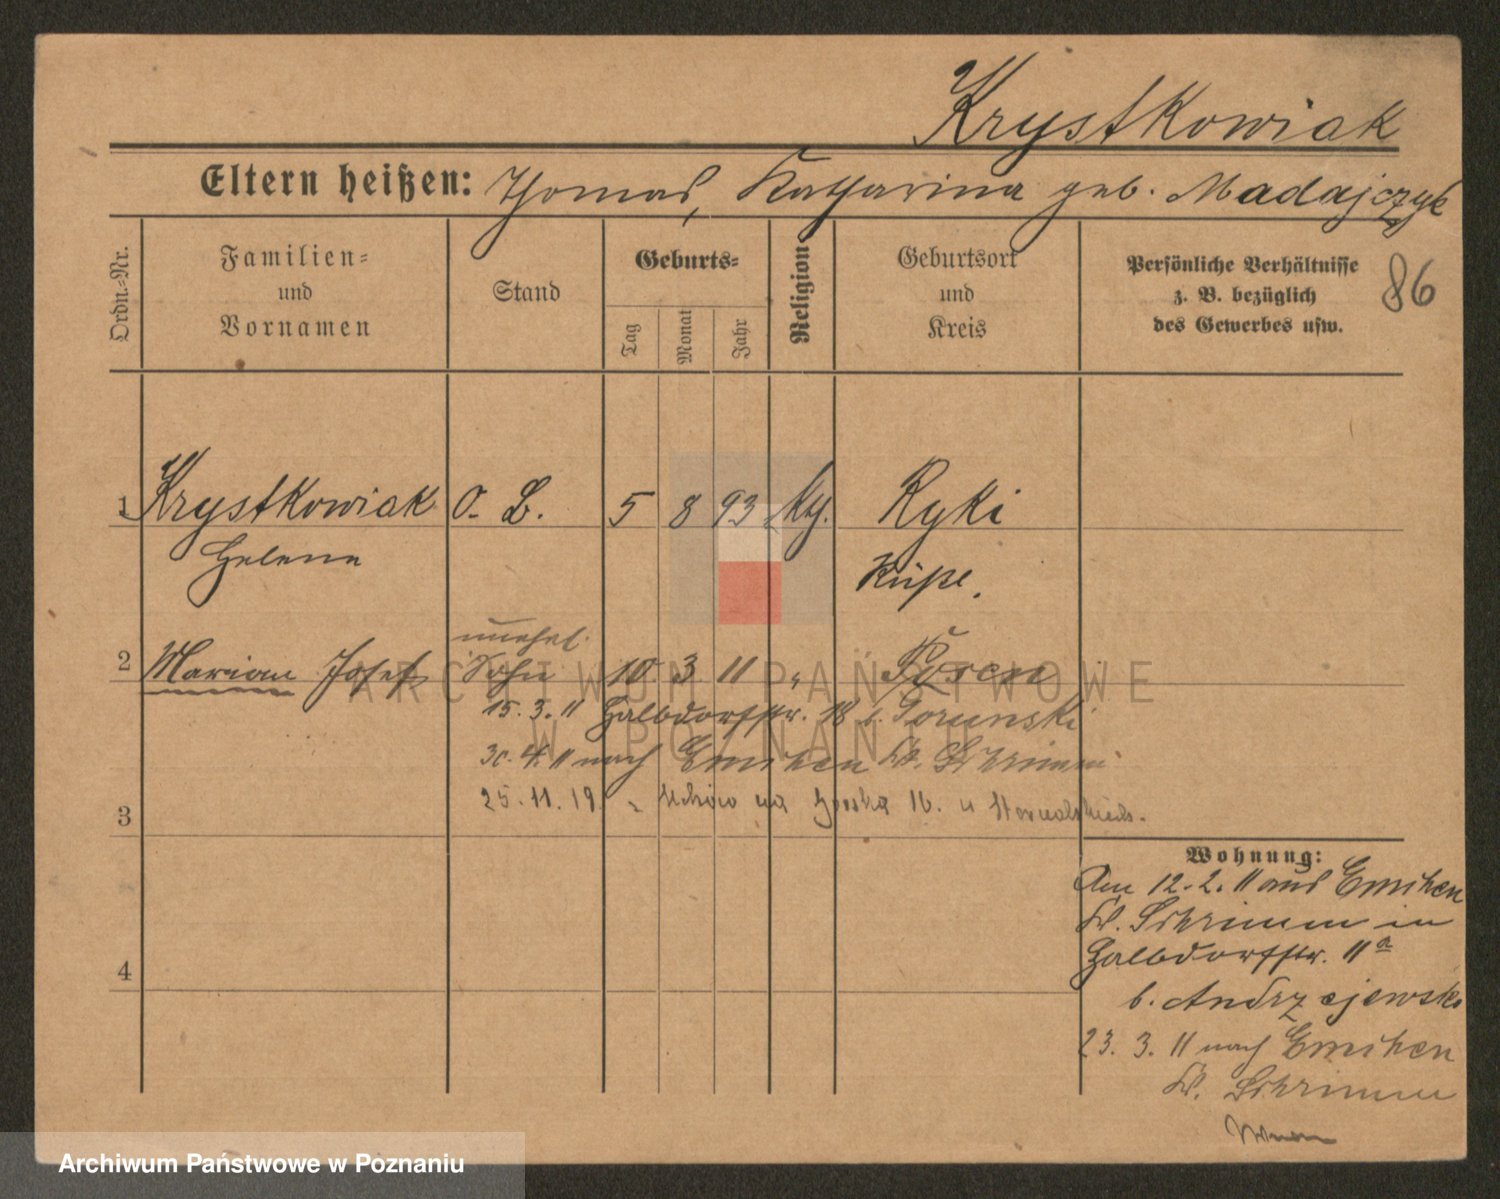 Krystkowiak
Eltern heißen: Thomas, Katharina geb. Madajczyk
Ordn.-Nr.
Familien-
und
Vornamen
Stand
Geburts-
Tag
Monat
Jahr
Religion
Geburtsort
und
Kreis
Persönliche Verhältnisse
z. B. bezüglich
des Gewerbes usw.
86
1 Krystkowiak O. L. 5 8 93 Kth. Ryki
Helene
unehel.
2 Marian Josef Sohn 10. 3. 11 " Posen
15. 3. 11 Halbdorfstr. 18 b.
30. 4. 11 nach Emchen Kr. Schrimm
25. 11. 19
3
4
Wohnung:
Am 12. 2. 11 aus Emchen
Kr. Schrimm in
Halbdorfstr. 11a
b. Andrzejewski
23. 3. 11 nach Emchen
Kr. Schrimm
ARCHIWUM PAŃSTWOWE
W POZNANIU
Archiwum Państwowe w Poznaniu